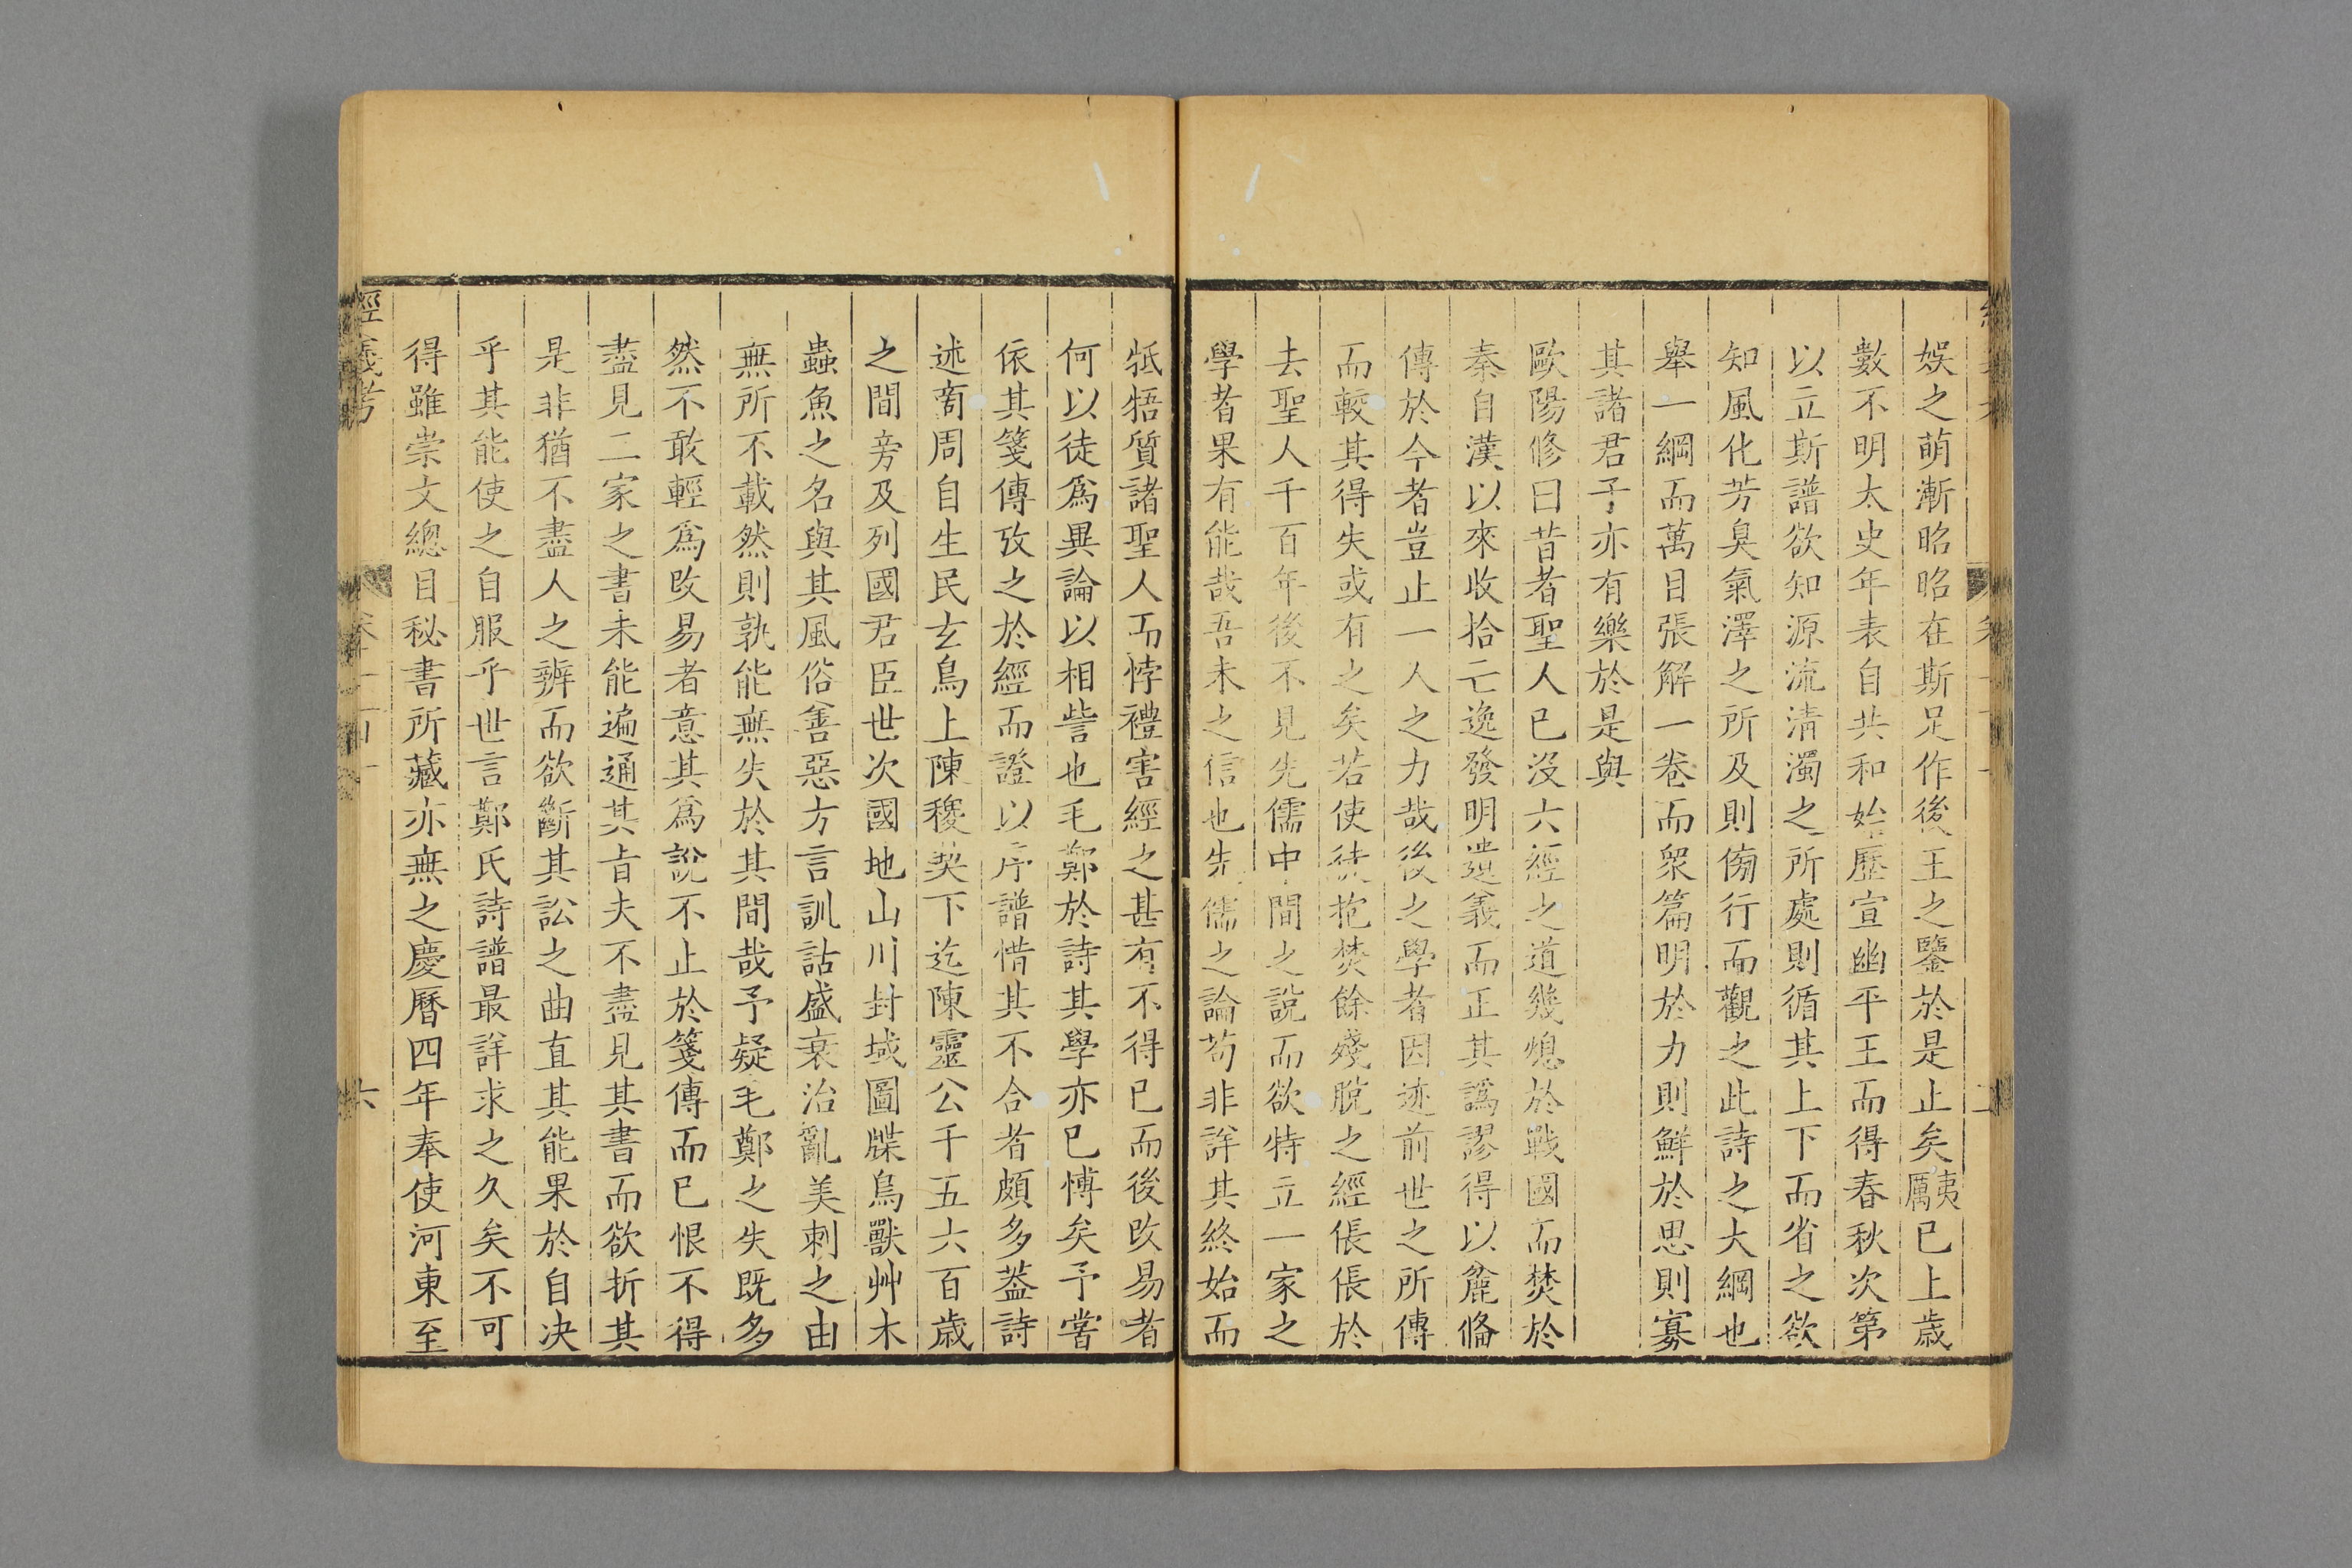 娛之萌漸昭昭在斯足作後王之鑒於是止矣夷厲已上歲
數不明太史年表自共和始歷宣幽平王而得春秋次第
以立斯譜欲知源流清濁之所處則循其上下而省之欲
知風化芳臭氣澤之所及則傍行而觀之此詩之大綱也
舉一綱而萬目張解一卷而衆篇明於力則鮮於思則寡
其諸君子亦有樂於是與
歐陽修曰昔者聖人已沒六經之道幾熄於戰國而焚於
秦自漢以來收拾亡逸發明遺義而正其譌謬得以麄俻
傳於今者豈止一人之力哉後之學者因迹前世之所傳
而較其得失或有之矣若使徒抱焚餘殘脫之經倀倀於
去聖人千百年後不見先儒中間之說而欲特立一家之
學者果有能哉吾未之信也先儒之論苟非詳其終始而
牴牾質諸聖人而悖禮害經之甚有不得已而後攺易者
何以徒爲異論以相訾也毛鄭於詩其學亦已愽矣予嘗
依其箋傳攷之於經而證以序譜惜其不合者頗多葢詩
述商周自生民玄鳥上陳稷契下迄陳靈公千五六百歲
之間旁及列國君臣世次國地山川封域圖牒鳥獸艸木
蟲魚之名與其風俗善惡方言訓詁盛衰治亂美刺之由
無所不載然則孰能無失於其間哉予疑毛鄭之失既多
然不敢輕爲攺易者意其爲說不止於箋傳而已恨不得
盡見二家之書未能遍通其旨夫不盡見其書而欲折其
是非猶不盡人之辨而欲斷其訟之曲直其能果於自决
乎其能使之自服乎世言鄭氏詩譜最詳求之久矣不可
得雖崇文總目秘書所藏亦無之慶曆四年奉使河東至
經義考
六